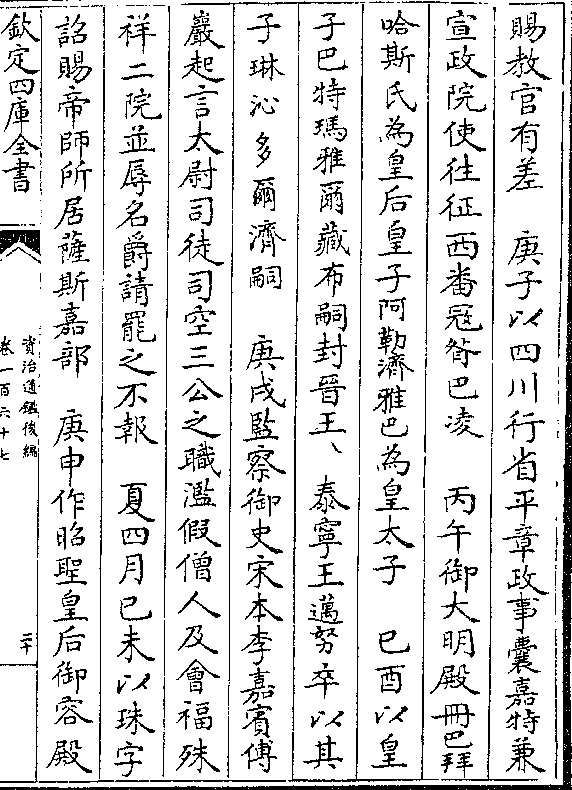 賜教官有差　庚子以四川行省平章政事囊嘉特兼
宣政院使往征西番冦沓巴凌　丙午御大明殿冊巴拜
哈斯氏為皇后皇子阿勒濟雅巴為皇太子　己酉以皇
子巴特瑪雅爾藏布嗣封晉王、泰寧王邁努卒以其
子琳沁多爾濟嗣　庚戌監察御史宋本李嘉賓傅
巖起言太尉司徒司空三公之職濫假僧人及會福殊
祥二院並辱名爵請罷之不報　夏四月己未以珠字
詔賜帝師所居薩斯嘉部　庚申作昭聖皇后御容殿
欽定四庫全書
資治通鑑後編
卷一百六十七
二十